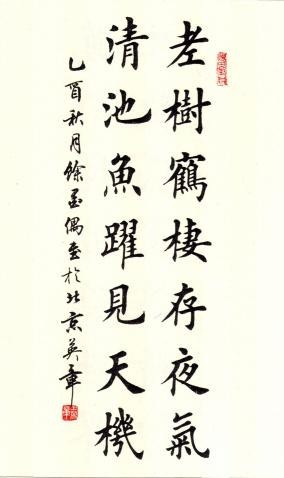 老樹鶴棲存夜氣
清池魚躍見天機
乙酉秋月餘墨偶書於北京英章